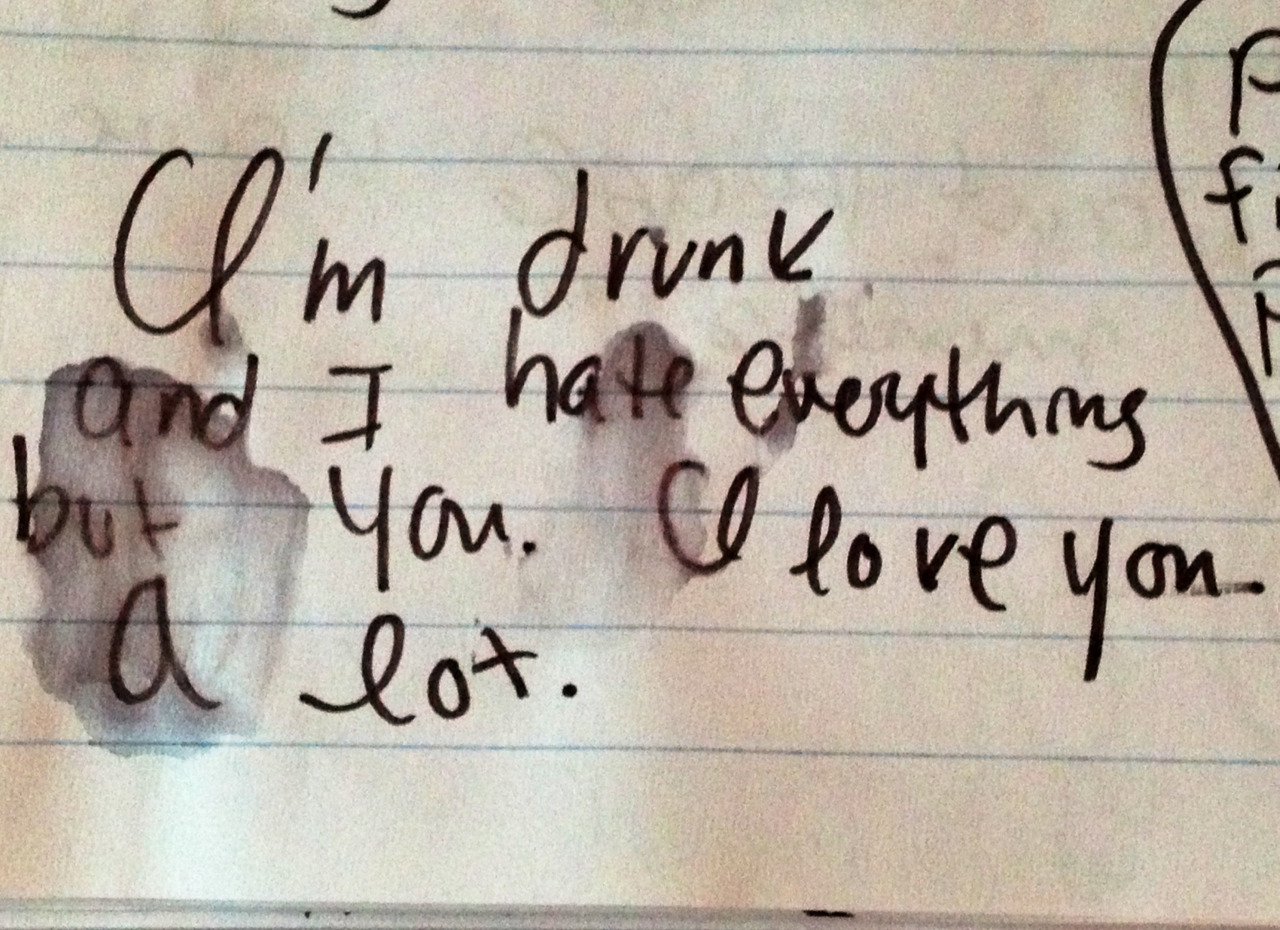 I'm drunk
and I hate everything
but you. I love you.
A lot.